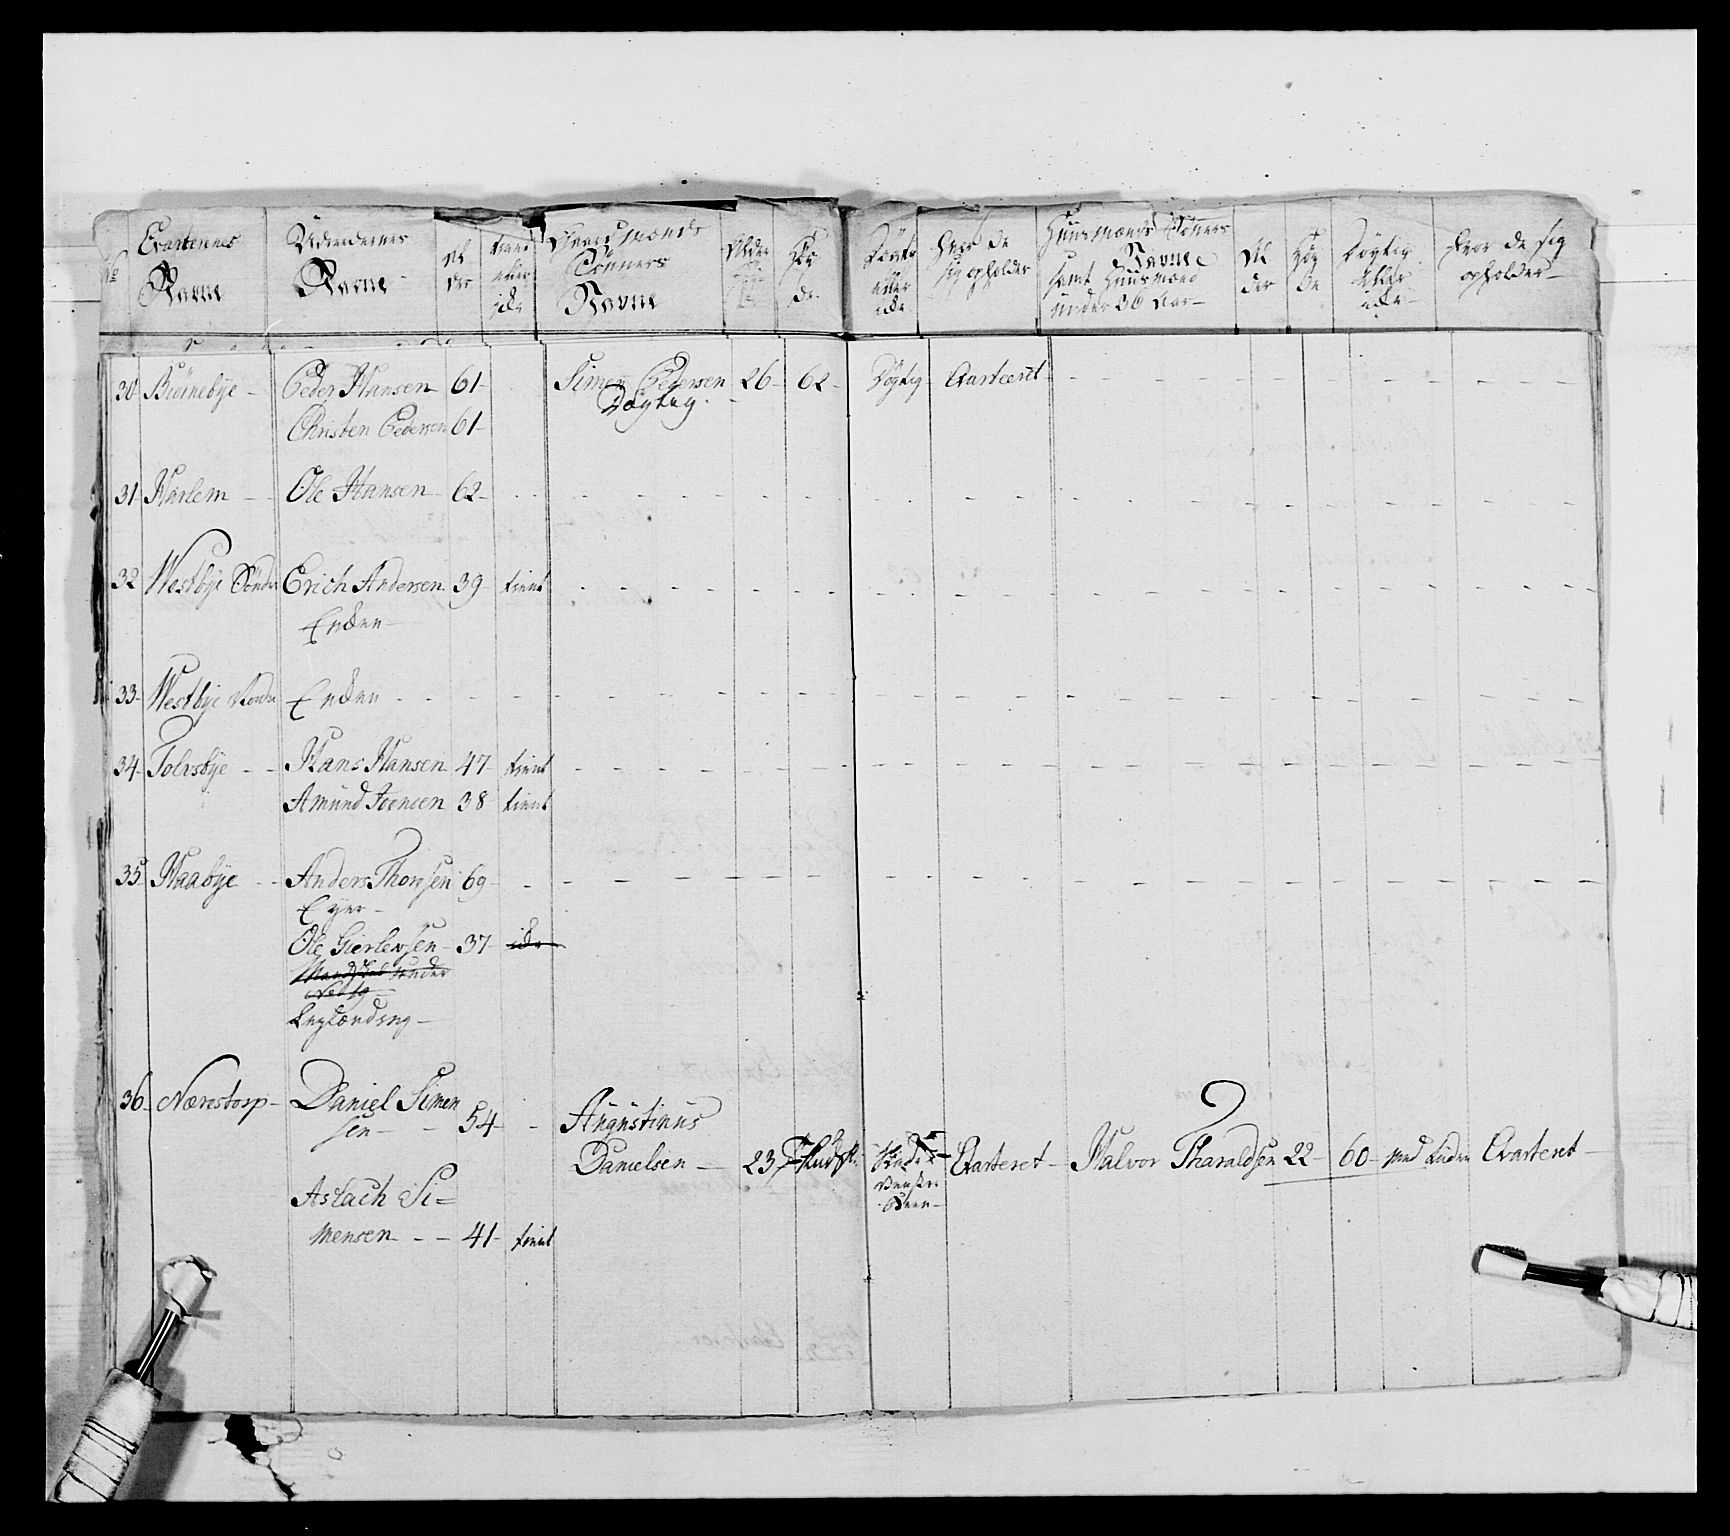 No
Qvarterenes Navne
Udredernes Navne
Al der
tient eller ikke
Gaardmænds Sönners Navne
Alder
Høy de
Dögtig eller ikke
Hvor de sig opholder
Huusmænds Sönners Navne samt Huusmænd under 36 Aar
Al der
Høy de
Dögtig eller ikke
Hvor de sig opholder
30 Biörnebye - Peder Hansen 61 - Simen Pedersen - 26 - 62 - Dögtig - Qvarteret
Dögtig
Christen Pedersen 61
31 Harlem - Ole Hansen 62
32 Westbye Söndre Erich Andersen 39 tient
Enken
33 Westbye Nordre Enken
34 Tolvsbye - Hans Hansen 47 tient
Amund Joensen 38 tient
35 Haabye - Anders Thorsen 69
Eyer
Ole Gierlovsen 37 ikke
under
Leylænding
36 Nærestorp - Daniel Simen
sen - 54 - Augustinus
Danielsen - 23 - Qvarteret - Halvor Tharaldsen 22 - 60 - Qvarteret
Aslach Si=
mensen - 41 - tient